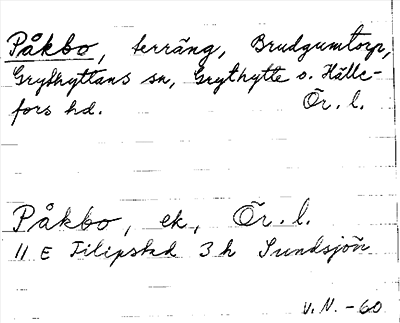 Påkbo, terräng, Brudgumtorp,
Grythyttans sn, Grythytte o. Hälle-
fors hd. Ör. l.
Påkbo, ek, Ör. l.
11 E Filipstad 3 h Sundsjön
V. N. -60